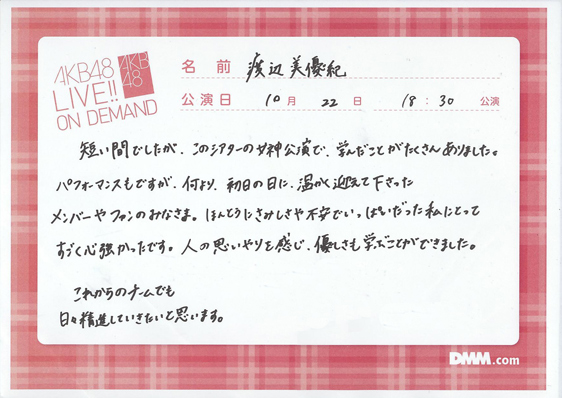 AKB48
LIVE!!
ON DEMAND
AKB
48
名前 渡辺美優紀
公演日 10月 22日 18:30 公演
短い間でしたが、このシアターの女神公演で、学んだことがたくさんありました。
パフォーマンスもですが、何より、初日の日に、温かく迎えて下さった
メンバーやファンのみなさま。ほんとうにさみしさや不安でいっぱいだった私にとって
すごく心強かったです。人の思いやりを感じ、優しさも学ぶことができました。
これからのチームでも
日々精進していきたいと思います。
DMM.com